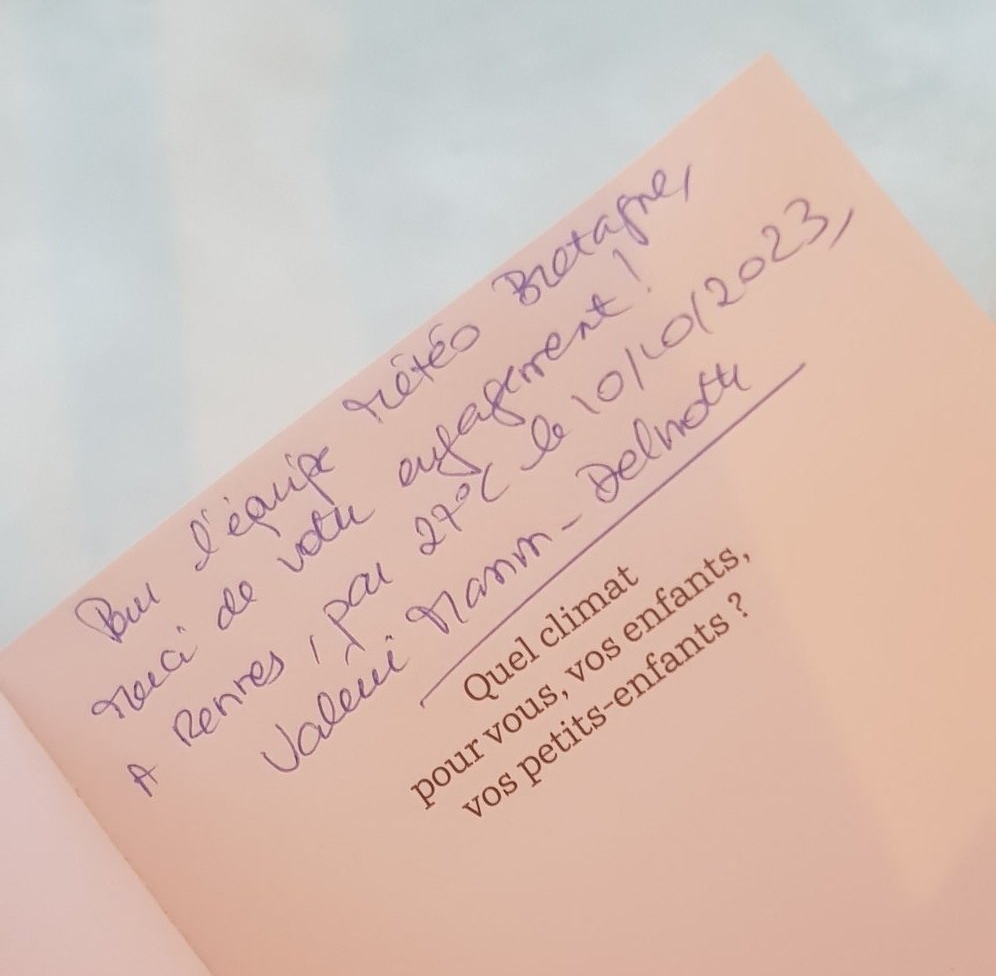 Pour l'équipe Météo Bretagne,
merci de votre engagement !
A Rennes, par 27°C le 10/10/2023,
Valérie Masson-Delmotte
Quel climat
pour vous, vos enfants,
vos petits-enfants ?